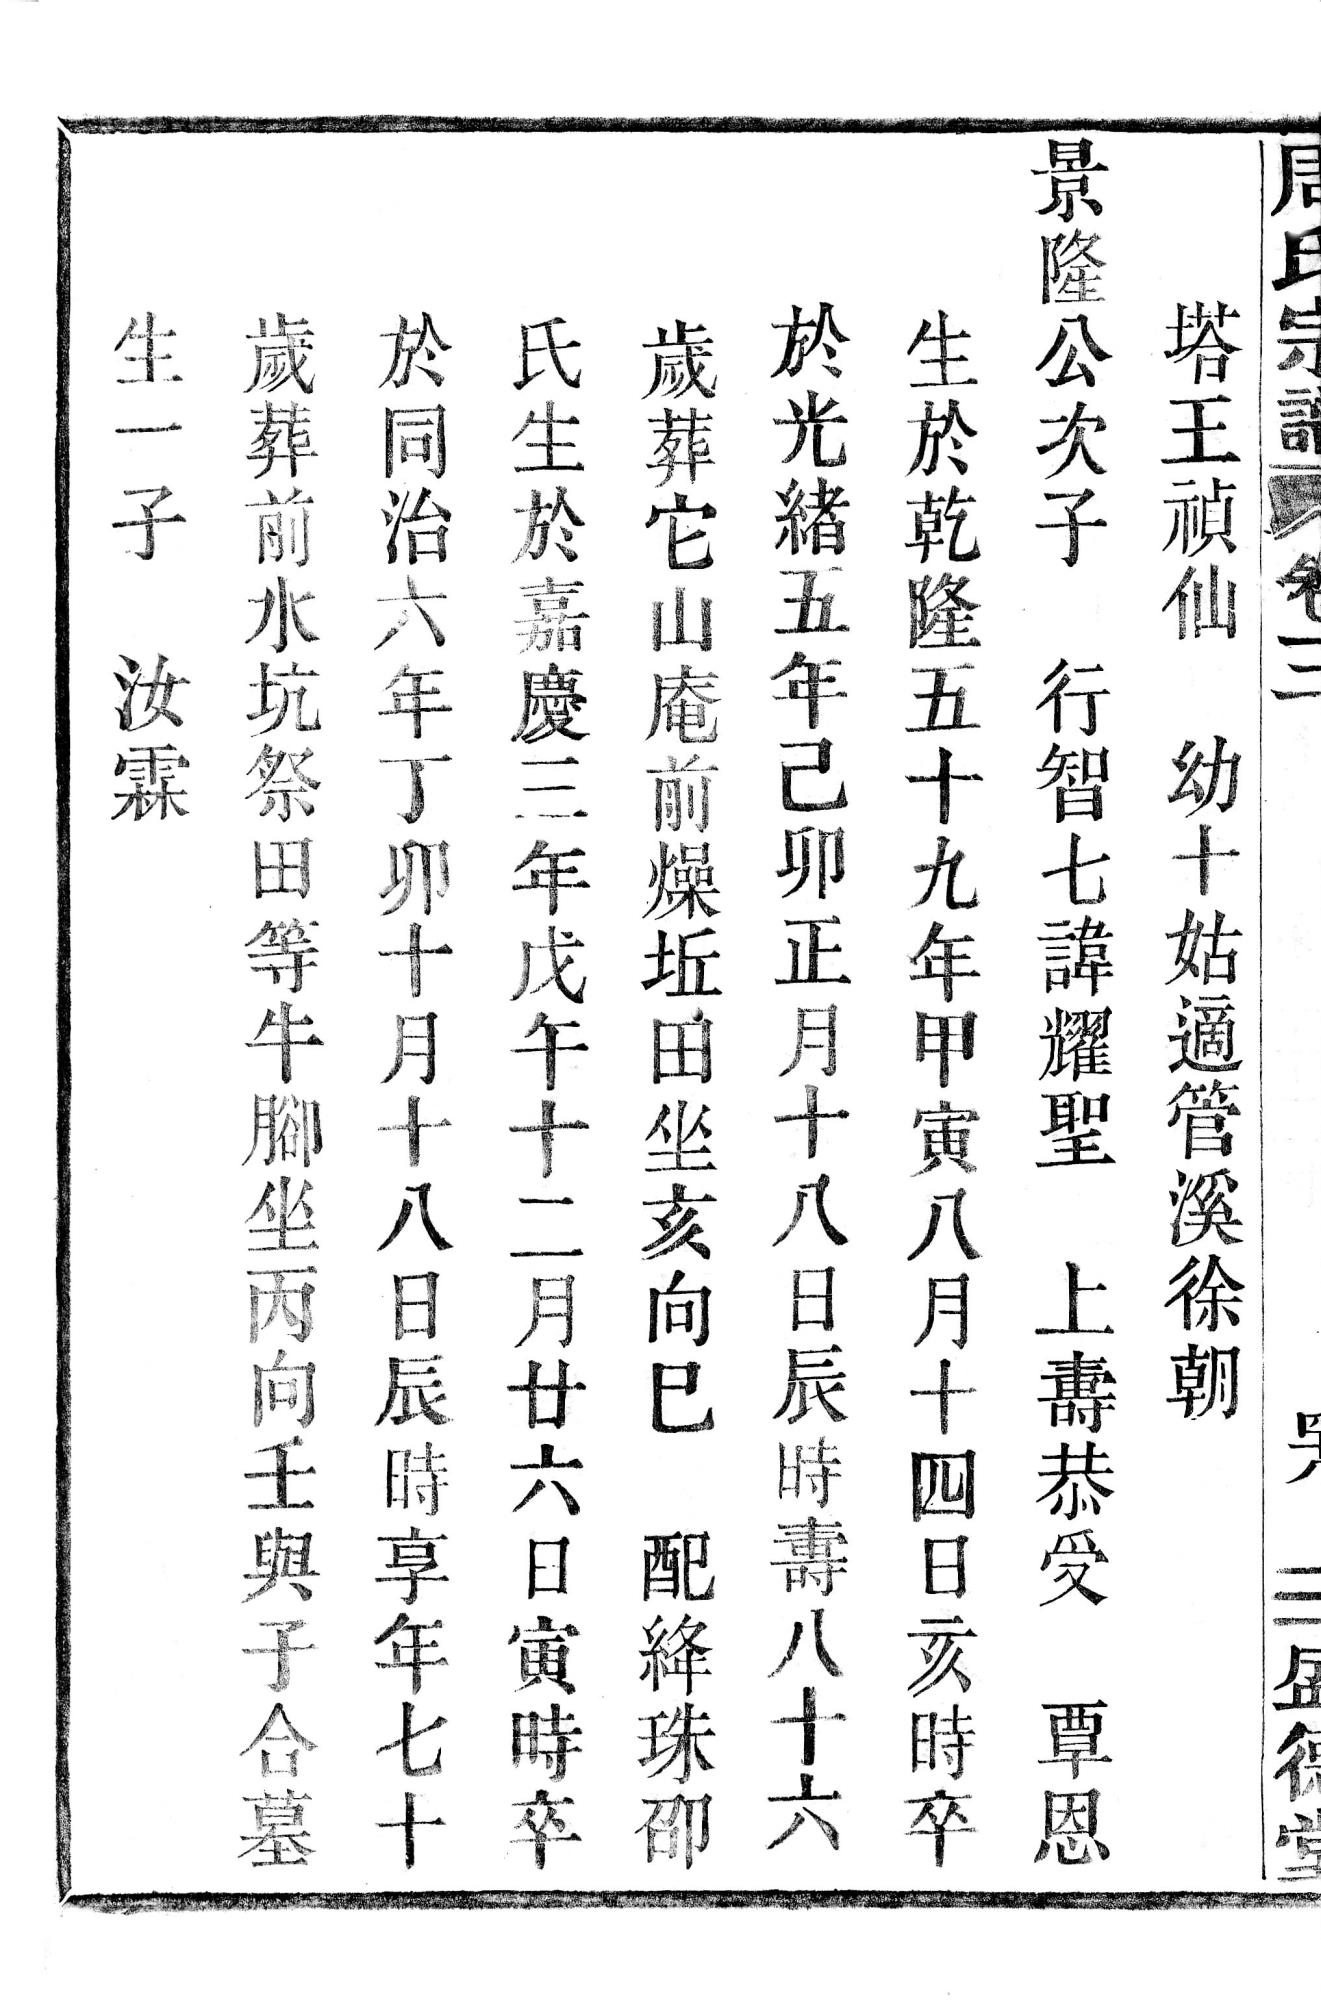 周氏宗譜 卷三 盛德堂
塔王禎仙 幼十姑適管溪徐朝
景隆公次子 行智七諱耀聖 上壽恭受 覃恩
生於乾隆五十九年甲寅八月十四日亥時卒
於光緒五年己卯正月十八日辰時壽八十六
歲葬它山庵前燥坵田坐亥向巳 配絳珠邵
氏生於嘉慶三年戊午十二月廿六日寅時卒
於同治六年丁卯十月十八日辰時享年七十
歲葬前水坑祭田等牛腳坐丙向壬與子合墓
生一子 汝霖